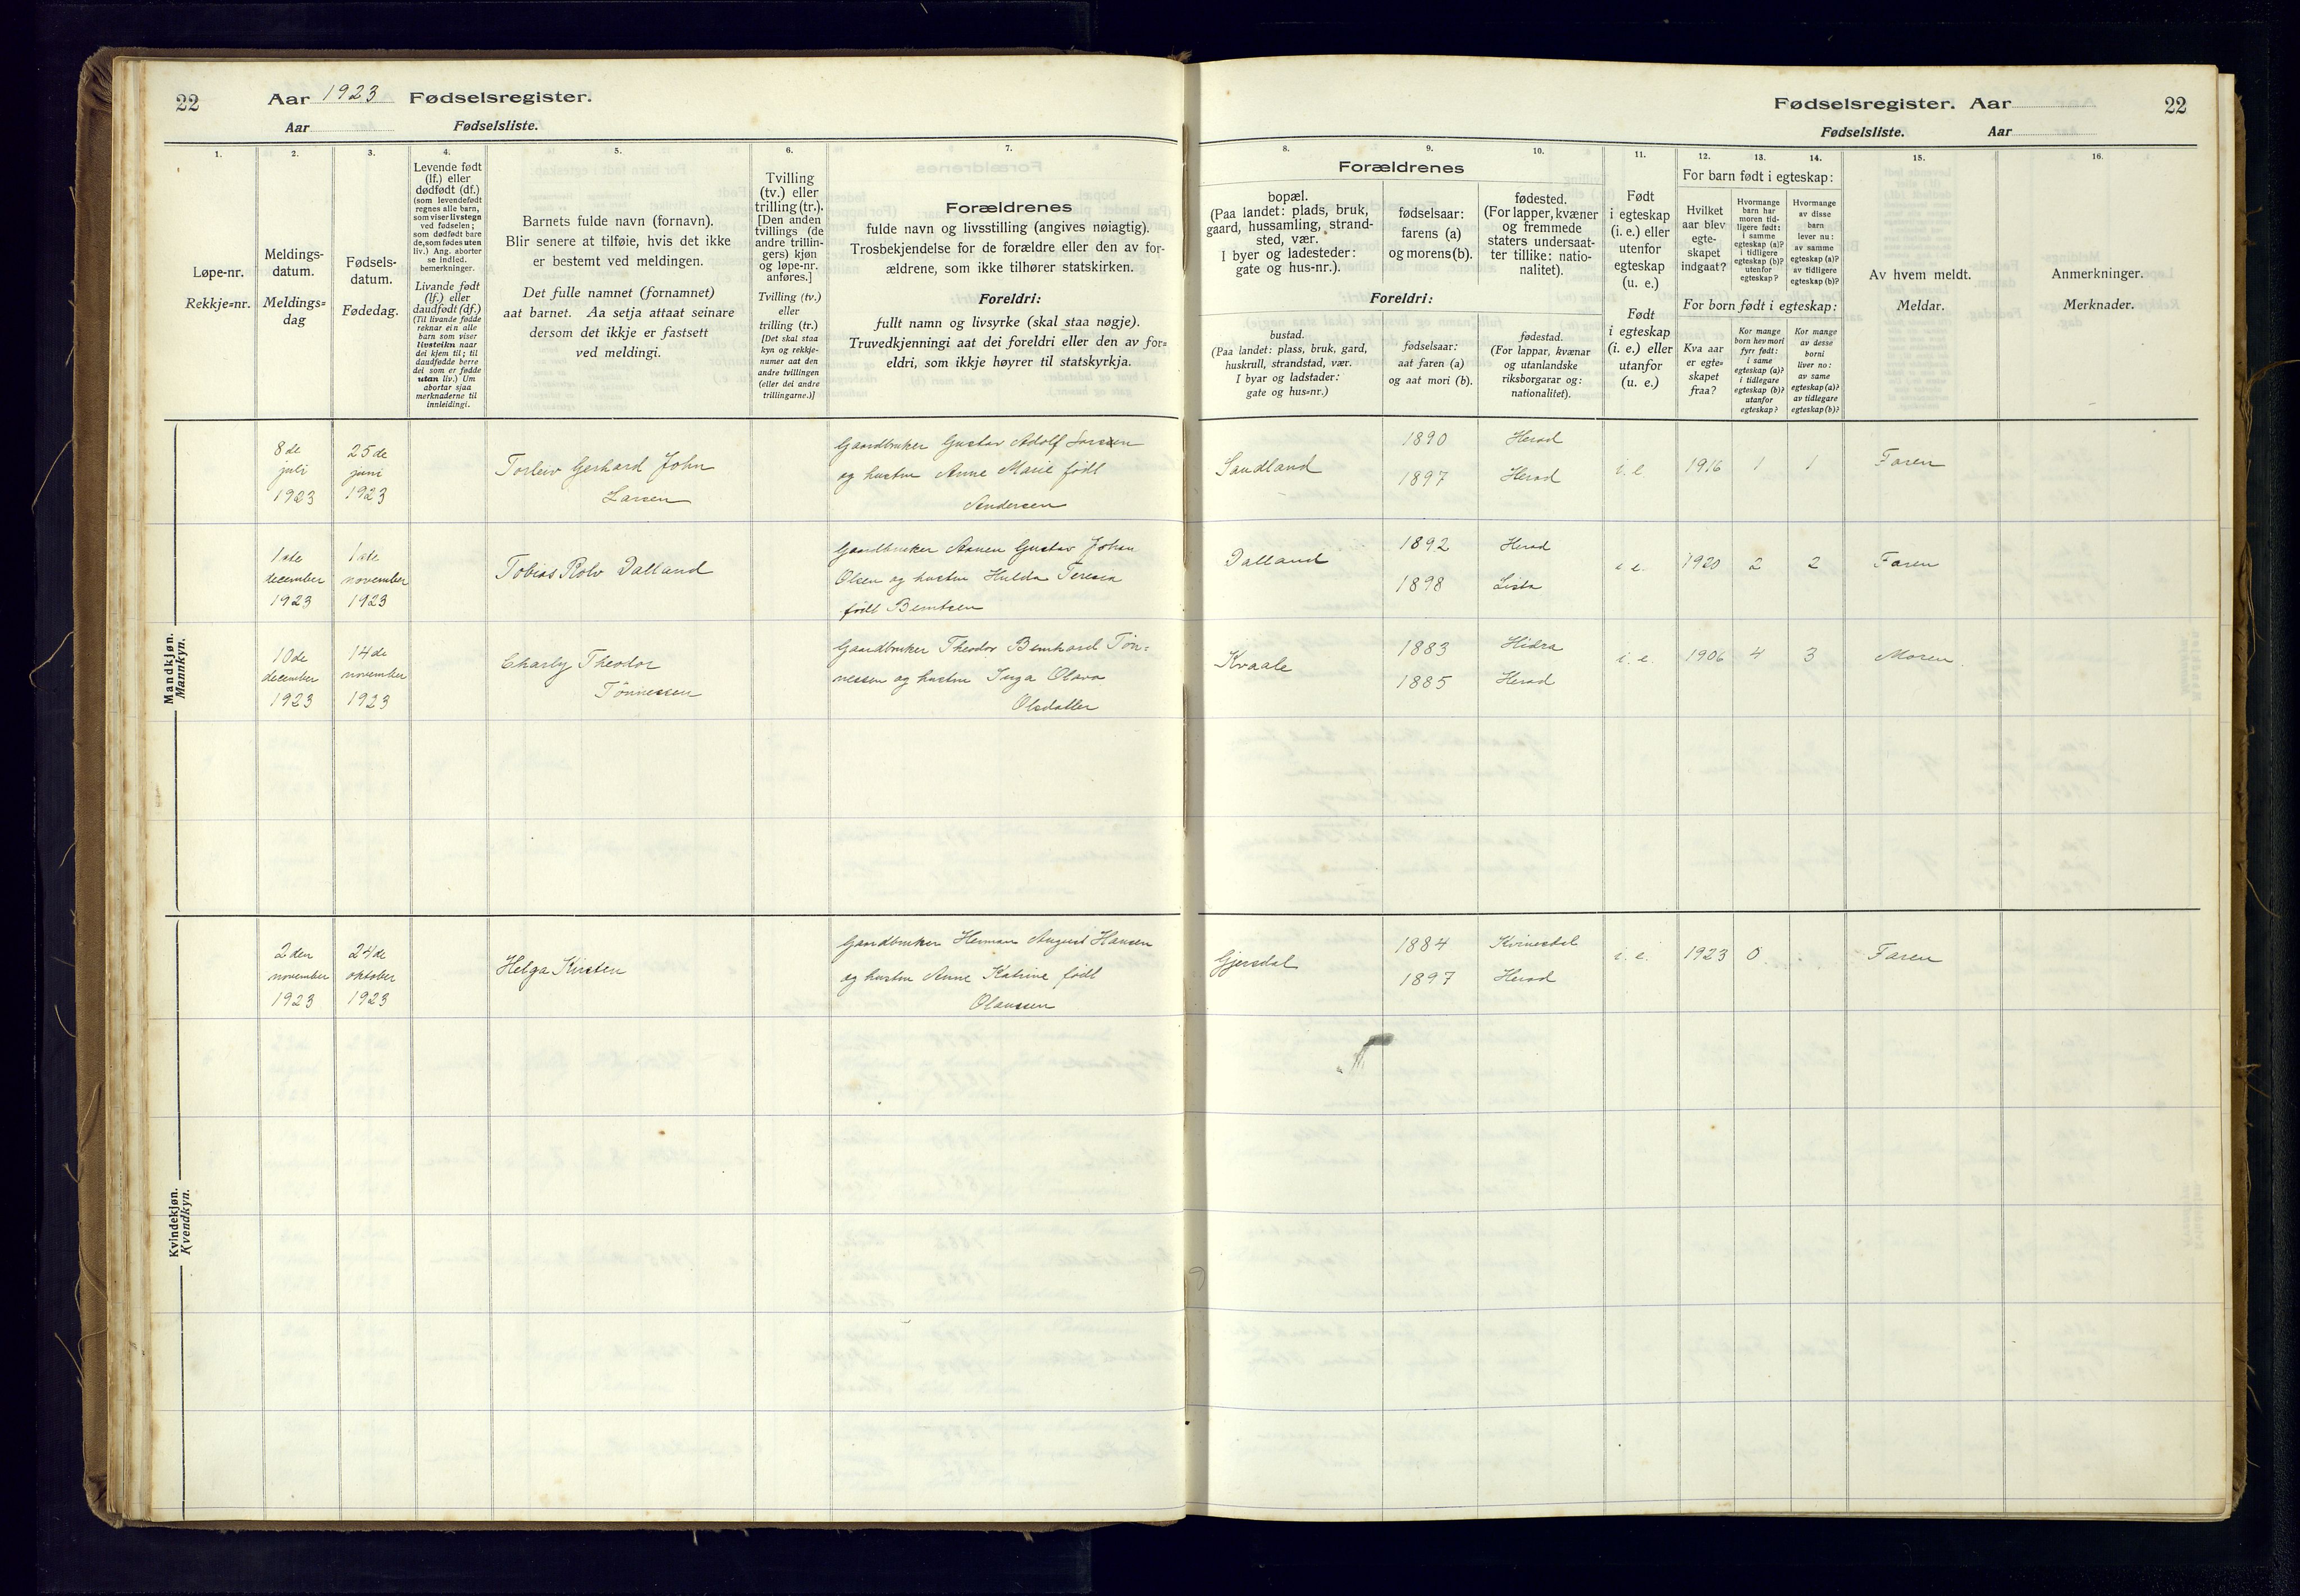 22
Aar 1923 Fødselsregister.
Aar Fødselsliste.
1.
2.
3.
4.
5.
6.
7.
Løpe-nr.
Rekkje-nr.
Meldings-
datum.
Meldings-
dag
Fødsels-
datum.
Fødedag.
Levende født
(lf.) eller
dødfødt (df.)
(som levendefødt
regnes alle barn,
som viser livstegn
ved fødselen;
som dødfødt bare
de, som fødes uten
liv.) Ang. aborter
se indled.
bemerkninger.
Livande født
(lf.) eller
daudfødt (df.)
(Til livande fødde
reknar ein alle
barn som viser
livsteikn naar
dei kjem til; til
daudfødde berre
dei som er fødde
utan liv.) Um
abortar sjaa
merknaderne til
innleidingi.
Barnets fulde navn (fornavn).
Blir senere at tilføie, hvis det ikke
er bestemt ved meldingen.
Det fulle namnet (fornamnet)
aat barnet. Aa setja attaat seinare
dersom det ikkje er fastsett
ved meldingi.
Tvilling
(tv.) eller
trilling (tr.).
[Den anden
tvillings (de
andre trillin-
gers) kjøn
og løpe-nr.
anføres.]
Tvilling (tv.)
eller
trilling (tr.)
[Det skal staa
kyn og rekkje-
numer aat den
andre tvillingen
(eller dei andre
trillingarne.)]
Forældrenes
fulde navn og livsstilling (angives nøiagtig).
Trosbekjendelse for de forældre eller den av for-
ældrene, som ikke tilhører statskirken.
Foreldri:
fullt namn og livsyrke (skal staa nøgje).
Truvedkjenningi aat dei foreldri eller den av for-
eldri, som ikkje høyrer til statskyrkja.
Mandkjøn.
Mannkyn.
8de
juli
1923
25de
juni
1923
Torleiv Gerhard John
Larsen
Gaardbruker Gustav Adolf Larsen
og hustru Anne Marie født
Andersen
1ste
december
1923
1ste
november
1923
Tobias Rolv Dalland
Gaardbruker Aanen Gustav Johan
Olsen og hustru Hulda Teresia
født Berntsen
10de
december
1923
14de
november
1923
Charly Theodor
Tönnessen
Gaardbruker Theodor Bernhard Tøn-
nessen og hustru Inga Olava
Olsdatter
Kvindekjøn.
Kvendkyn.
2den
november
1923
24de
oktober
1923
Helga Kirsten
Gaardbruker Herman August Hansen
og hustru Anne Katrine født
Olaussen
Fødselsregister. Aar
22
Fødselsliste. Aar
8.
9.
10.
11.
12.
13.
14.
15.
16.
Forældrenes
bopæl.
(Paa landet: plads, bruk,
gaard, hussamling, strand-
sted, vær.
I byer og ladesteder:
gate og hus-nr.).
fødselsaar:
farens (a)
og morens (b).
fødested.
(For lapper, kvæner
og fremmede
staters undersaat-
ter tillike: natio-
nalitet).
Foreldri:
bustad.
(Paa landet: plass, bruk, gard,
huskrull, strandstad, vær.
I byar og ladstader:
gate og hus-nr.)
fødselsaar:
aat faren (a)
og aat mori (b).
fødestad.
(For lappar, kvænar
og utanlandske
riksborgarar og:
nationalitet).
Født
i egteskap
(i. e.) eller
utenfor
egteskap
(u. e.)
Født
i egteskap
(i. e.) eller
utanfor
(u. e.)
For barn født i egteskap:
Hvilket
aar blev
egte-
skapet
indgaat?
Hvormange
barn har
moren tid-
ligere født:
i samme
egteskap (a)?
i tidligere
egteskap (b)?
utenfor
egteskap?
Hvormange
av disse
barn
lever nu:
av samme
egteskap (a)?
av tidligere
egteskap (b)?
For born født i egteskap:
Kva aar
er egte-
skapet
fraa?
Kor mange
born hev mori
fyrr født:
i same
egteskap (a)?
i tidlegare
egteskap (b)?
utanfor
egteskap?
Kor mange
av desse
borni
liver no:
av same
egteskap (a)?
av tidlegare
egteskap (b)?
Av hvem meldt.
Meldar.
Anmerkninger.
Merknader.
Sandland
1890
1897
Herad
Herad
i. e.
1916
1
1
Faren
Dalland
1892
1898
Herad
Lista
i e.
1920
2
2
Faren
Kvaale
1883
1885
Hidra
Herad
i. e.
1906
4
3
Moren
Gjersdal
1884
1897
Kvinesdal
Herad
i. e.
1923
0
Faren